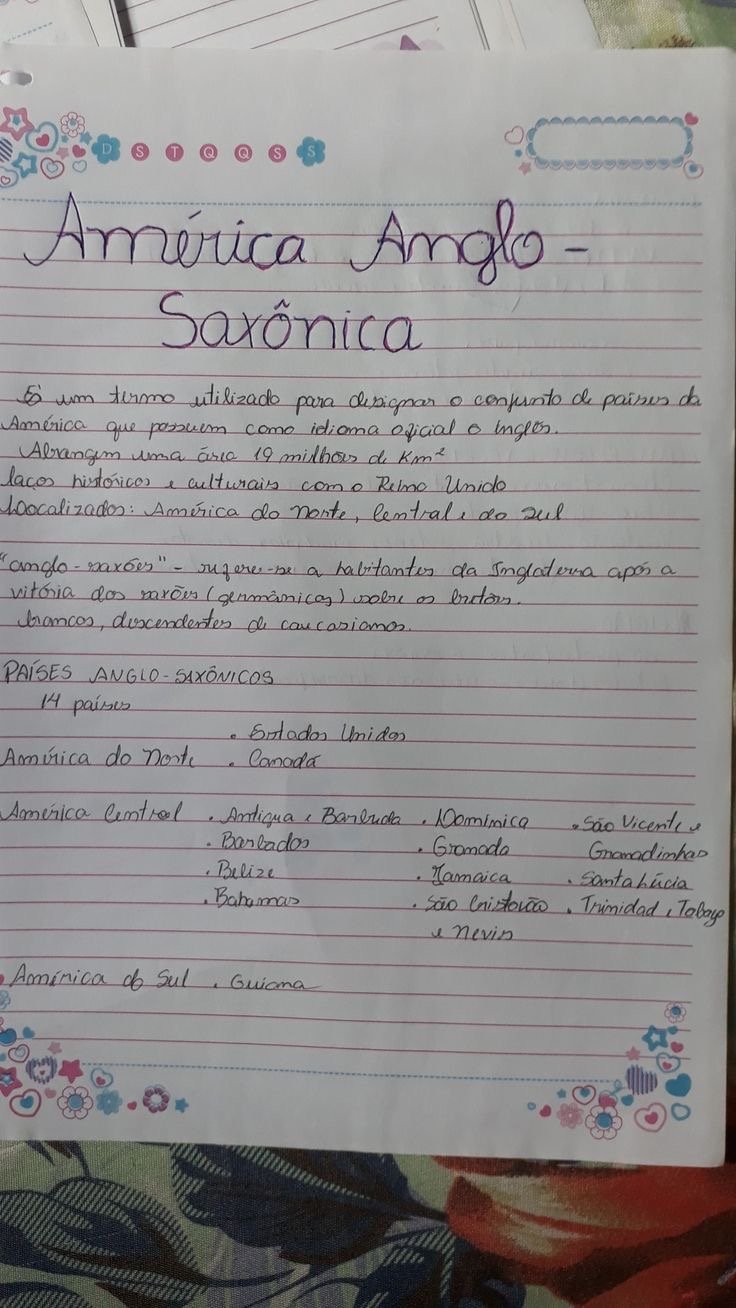 D S T Q Q S S
América Anglo-
Saxônica
É um termo utilizado para designar o conjunto de países da
América que possuem como idioma oficial o inglês.
Abrangem uma área 19 milhões de Km²
laços históricos e culturais com o Reino Unido
Loocalizados: América do norte, Central e do Sul
"anglo-saxões" - refere-se a habitantes da Inglaterra após a
vitória dos saxões (germânicos) sobre os bretões.
brancos, descendentes de caucasianos.
PAÍSES ANGLO-SAXÔNICOS
14 países
. Estados Unidos
América do Norte . Canadá
América Central . Antigua e Barbuda . Dominica . São Vicente e
. Barbados . Granada Granadinhas
. Belize . Jamaica . Santa Lúcia
. Bahamas . São Cristovão . Trinidad e Tobago
e Nevis
América do Sul . Guiana